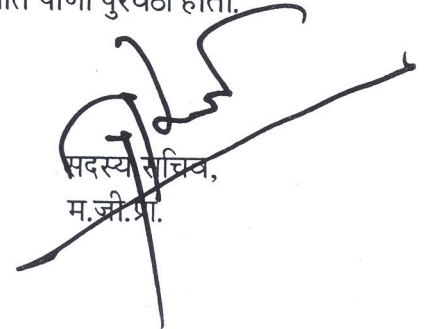 पाणी पुरवठा होतो.
सदस्य सचिव,
म.जी.प्रा.